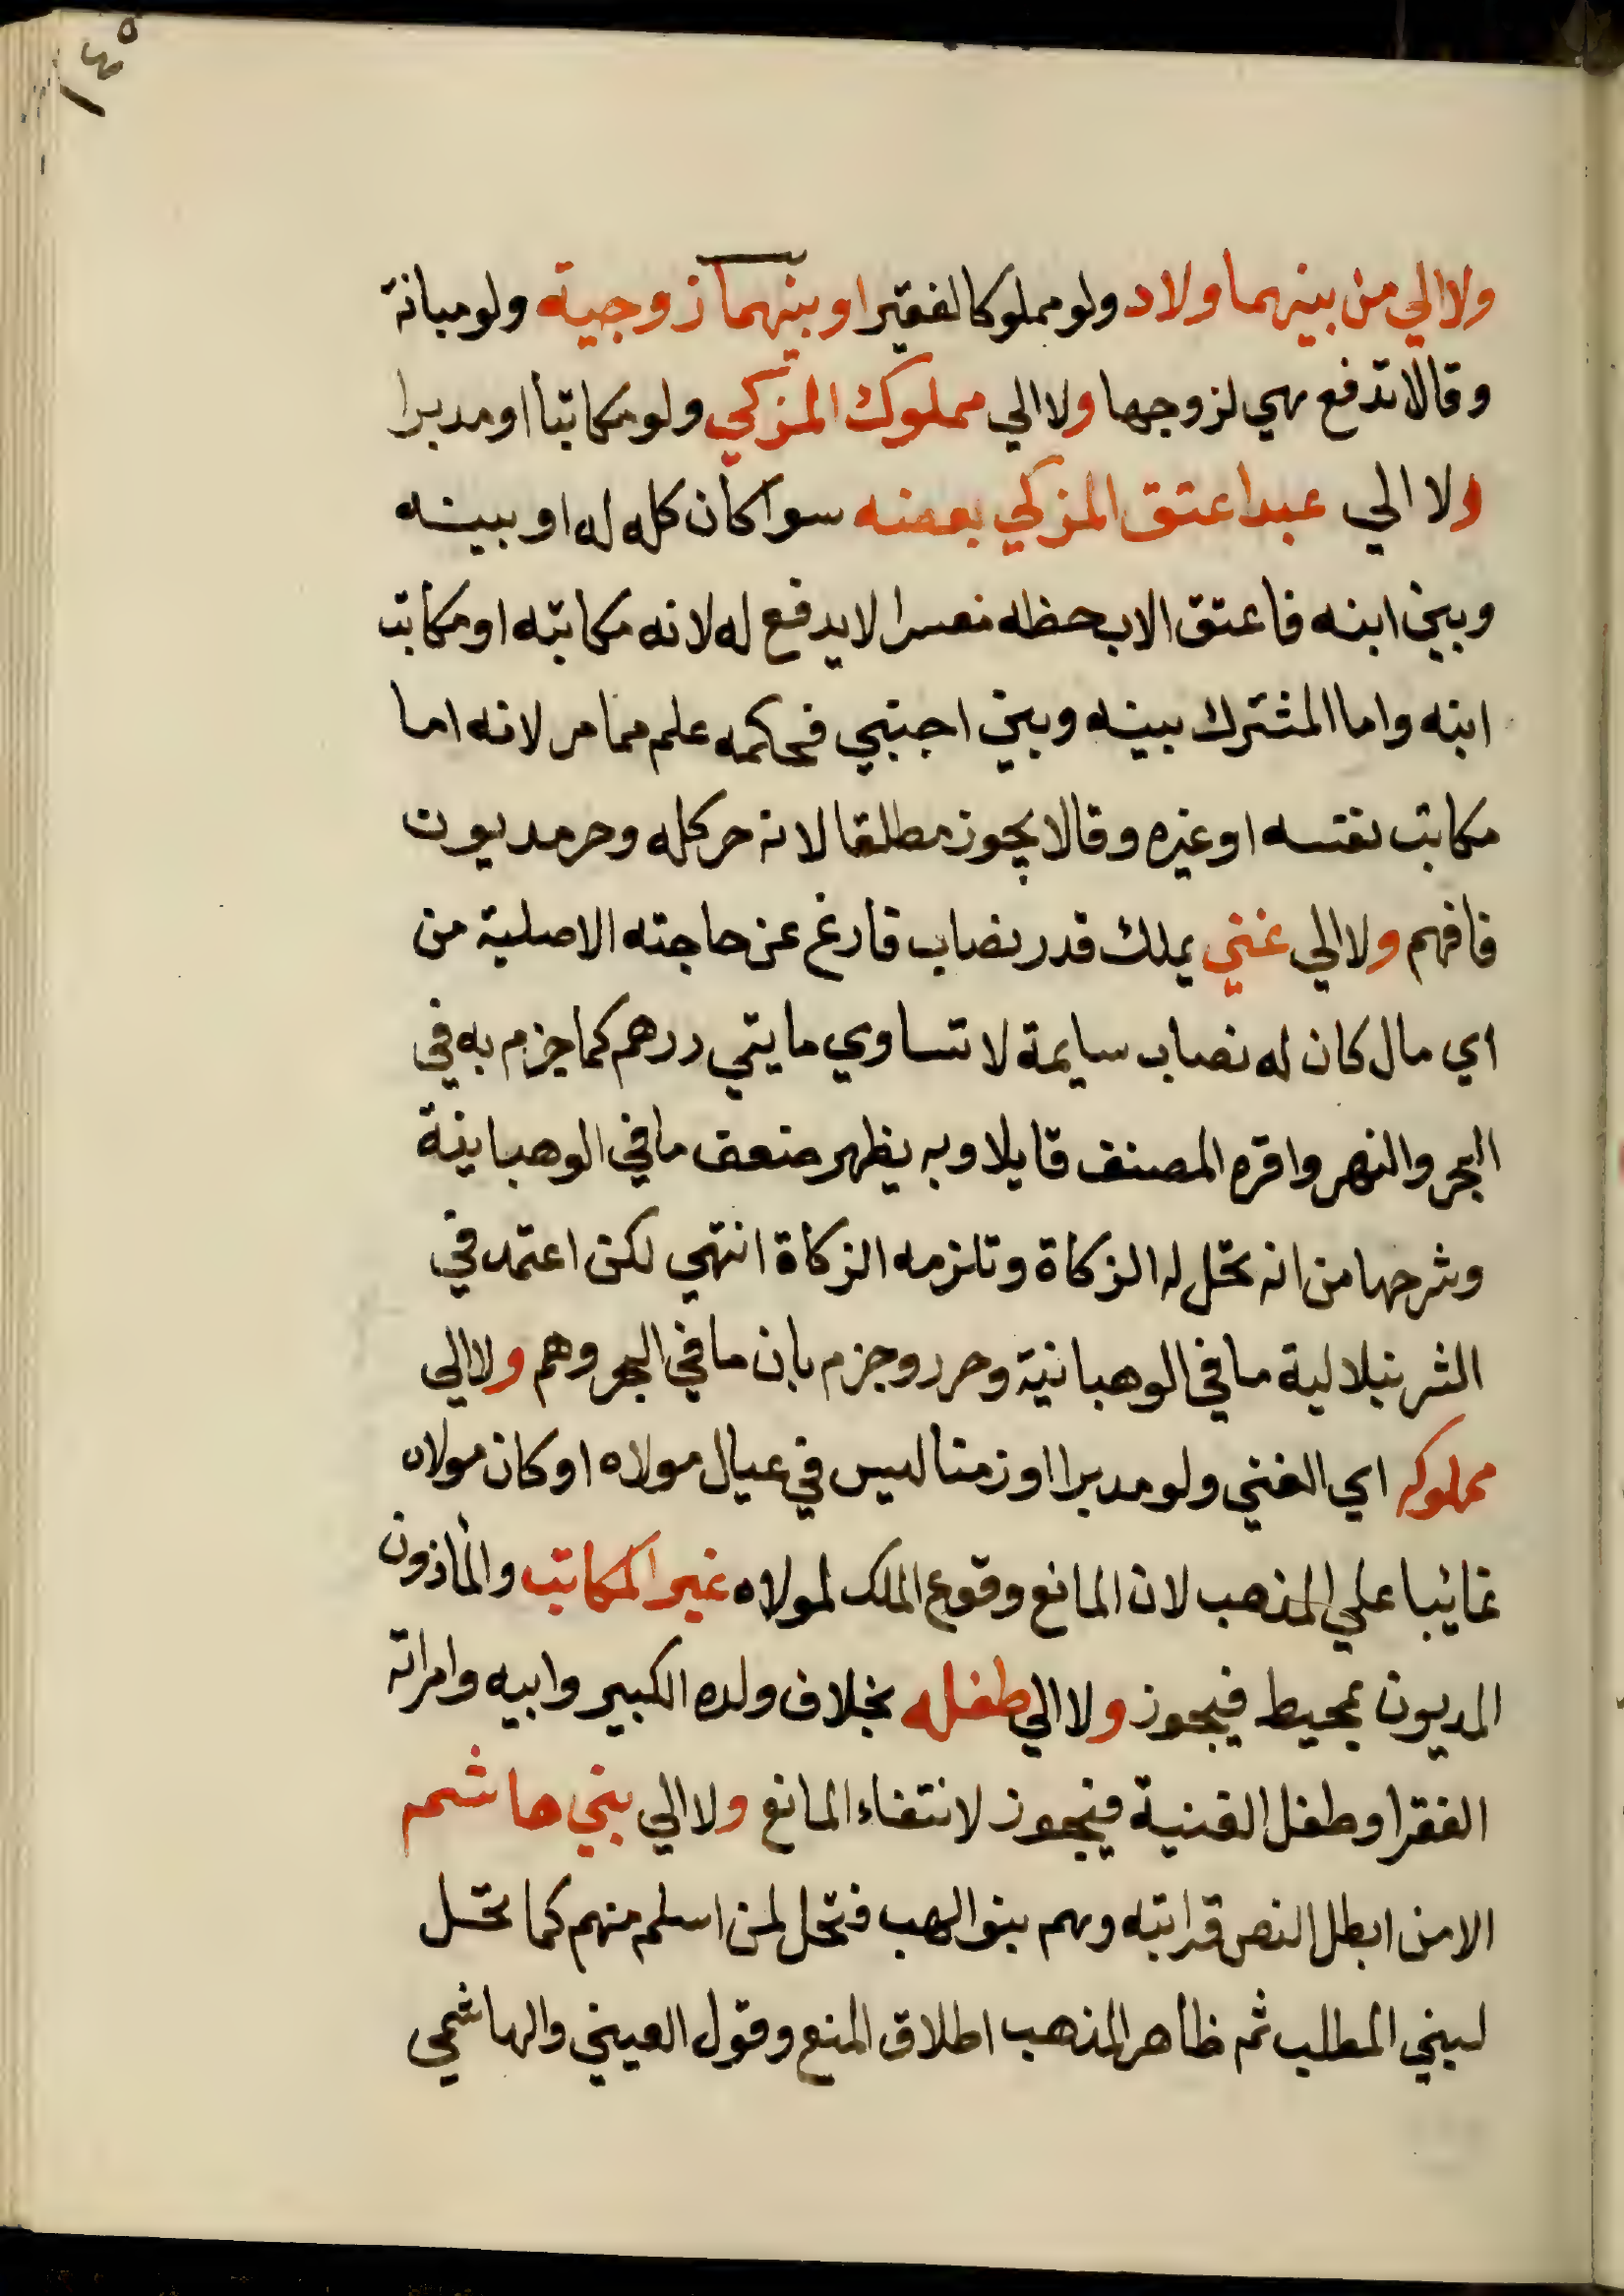 ١٤٥
ولا الي من بينهما ولاد ولو مملوكا لفقير او بينهما زوجية ولو مبانة
وقالا تدفع هي لزوجها ولا الي مملوك المزكي ولو مكاتبا او مدبرا
ولا الي عبد اعتق المزكي بعضه سوا كان كله له او بينه
وبين ابنه فاعتق الاب حظه معسرا لا يدفع له لانه مكاتبه او مكاتب
ابنه واما المشترك بينه وبين اجنبي فحكمه علم مما مر لانه اما
مكاتب نفسه او غيره وقالا يجوز مطلقا لانه حر كله وحر مديون
فافهم ولا الي غني يملك قدر نصاب فارغ عن حاجته الاصلية من
اي مال كان له نصاب سايمة لا تساوي مايتي درهم كما جزم به في
البحر والنهر واقره المصنف قايلا وبه يظهر ضعف ما في الوهبانية
وشرحها من انه تحل له الزكاة وتلزمه الزكاة انتهي لكن اعتمد في
الشرنبلالية ما في الوهبانية وحرر وجزم بان ما في البحر وهم ولا الي
مملوكه اي الغني ولو مدبرا او زمنا ليس في عيال مولاه او كان مولاه
غائبا علي المذهب لان المانع وقوع الملك لمولاه غير المكاتب والماذون
المديون بمحيط فيجوز ولا الي طفله بخلاف ولده الكبير وابيه وامراته
الفقرا وطفل الغنية فيجوز لانتفاء المانع ولا الي بني هاشم
الا من ابطل النص قرابته وهم بنو الهب فتحل لمن اسلم منهم كما تحل
لبني المطلب ثم ظاهر المذهب اطلاق المنع وقول العيني والهاشمي